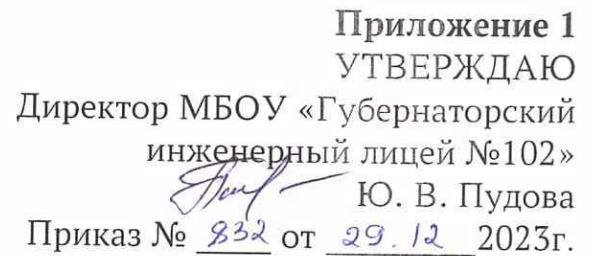 Приложение 1
УТВЕРЖДАЮ
Директор МБОУ «Губернаторский
инженерный лицей №102»
Ю. В. Пудова
Приказ № 832 от 29.12 2023г.